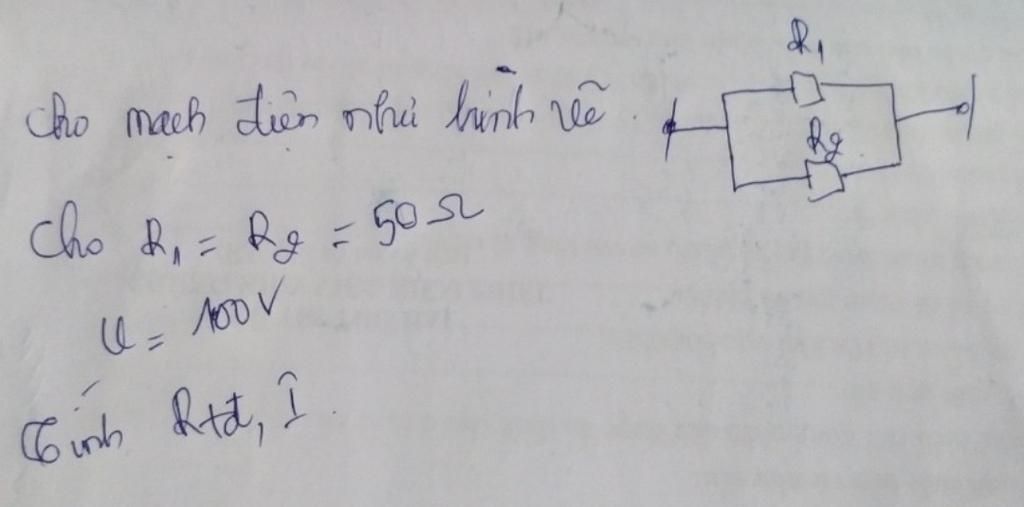 Cho mạch điện như hình vẽ.
R1
R2
Cho R1 = R2 = 50 Ω
U = 100V
Tính Rtđ, I.